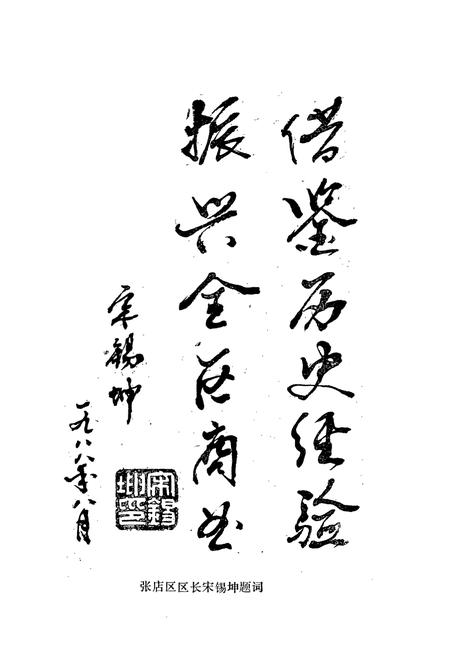 借鉴历史经验
振兴全区商业
宋锡坤
一九八八年八月
宋锡坤印
张店区区长宋锡坤题词